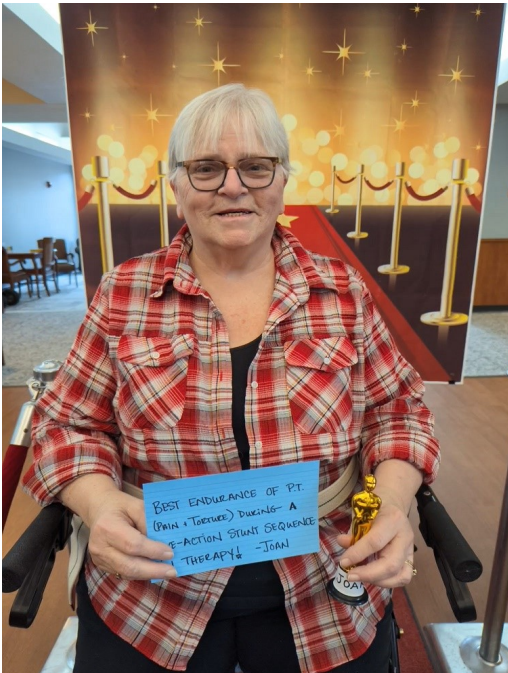 BEST ENDURANCE OF P.T.
(PAIN + TORTURE) DURING A
E-ACTION STUNT SEQUENCE
THERAPY! -JOAN
JOAN